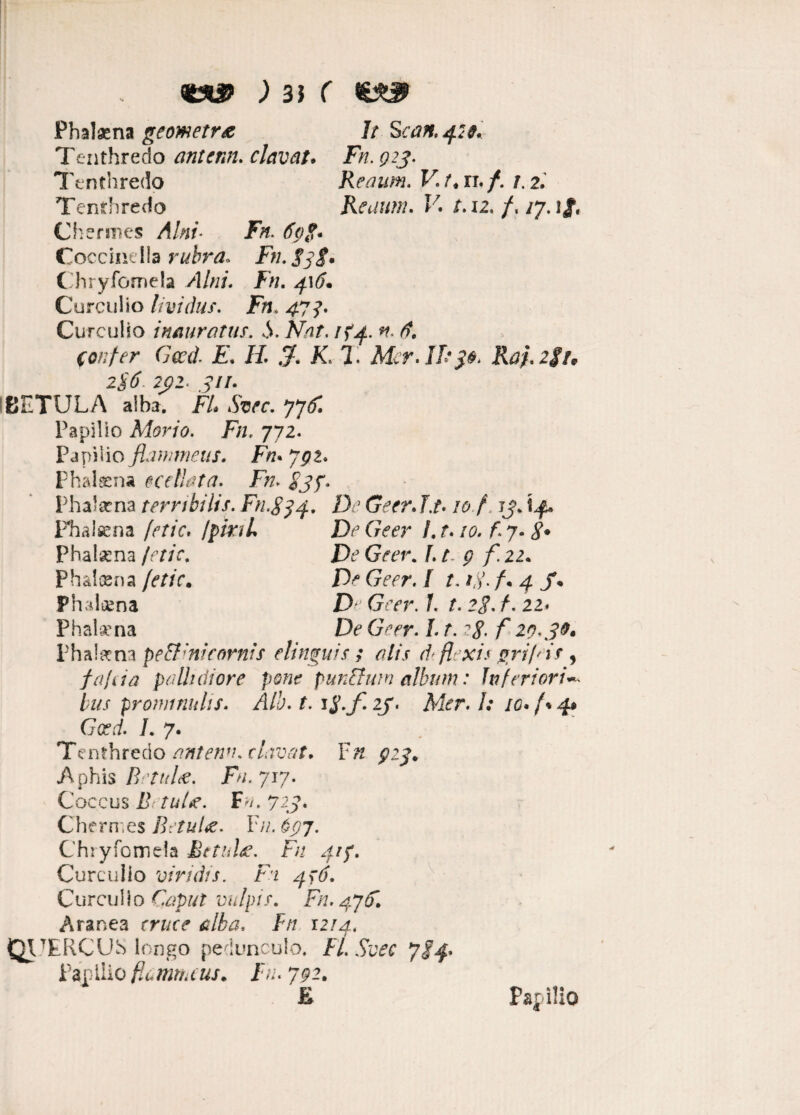 ) 33 (
Phalæna geometræ It Scan. 420.
Tenthredo antenn. clavat. Fn. 923.
Tenthredo Reaum. V. t. 11. f. 1. 2.
Tenthredo Reaum. V. t. 12. f. 17. 18.
Chermes Alni. Fn. 698.
Coccinella rubra. Fn. 838.
Chryſomela Alni. Fn. 416.
Curculio lividus. Fn. 473.
Curculio inauratus. S. Nat. 154. n. 6.
confer Gœd. E. H. J. K. 1. Mer. II: 30. Raj. 281.
286. 292. 311.
BETULA alba. Fl. Svec. 776.
Papilio Morio. Fn. 772.
Papilio flammeus. Fn. 792.
Phalæna ocellata. Fn. 835.
Phalæna terribilis. Fn. 834. De Geer. I. t. 10. f. 13. 14.
Phalæna ſetic. ſpiril. De Geer I. t. 10. f. 7. 8.
Phalæna ſetic. De Geer. I. t. 9 f. 22.
Phalæna ſetic. De Geer. I t. 18. f. 4 5.
Phalæna De Geer. I. t. 28. f. 22.
Phalæna De Geer. I. t. 28. f 29. 30.
Phalæna pectinicornis elinguis; alis deflexis griſeis,
faſcia pallidiore pone punctum album: Inferiori-
bus promnulis. Alb. t. 18. f. 25. Mer. I: 10. f. 4.
Gœd. I. 7.
Tenthredo antenn. clavat. Fn 923.
Aphis Betulæ. Fn. 717.
Coccus Betulæ. Fn. 723.
Chermes Betulæ. Fn. 697.
Chryſomela Betulæ. Fn 415.
Curculio viridis. Fn 456.
Curculio Caput vulpis. Fn. 476.
Aranea cruce alba. Fn 1214.
QUERCUS longo pedunculo. Fl. Svec 784.
Papilio flammeus. Fn. 792.
E Papilio